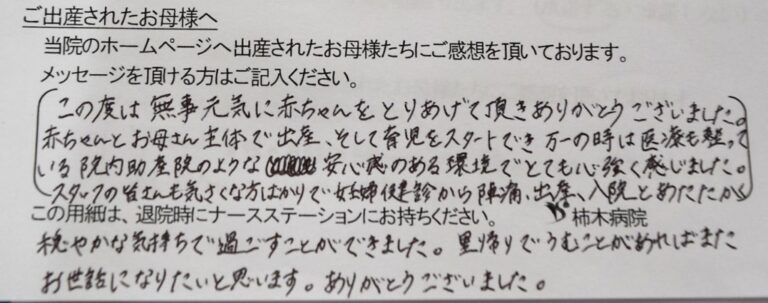 ご出産されたお母様へ
当院のホームページへ出産されたお母様たちにご感想を頂いております。
メッセージを頂ける方はご記入ください。
この度は無事元気に赤ちゃんをとりあげて頂きありがとうございました。
赤ちゃんとお母さん主体で出産、そして育児をスタートでき万一の時は医療も整って
いる院内助産院のような安心感のある環境でとても心強く感じました。
スタッフの皆さんも気さくな方ばかりで妊婦健診から陣痛、出産、入院とあたたかく
この用紙は、退院時にナースステーションにお持ちください。 柿木病院
穏やかな気持ちで過ごすことができました。里帰りでうむことがあればまた
お世話になりたいと思います。ありがとうございました。